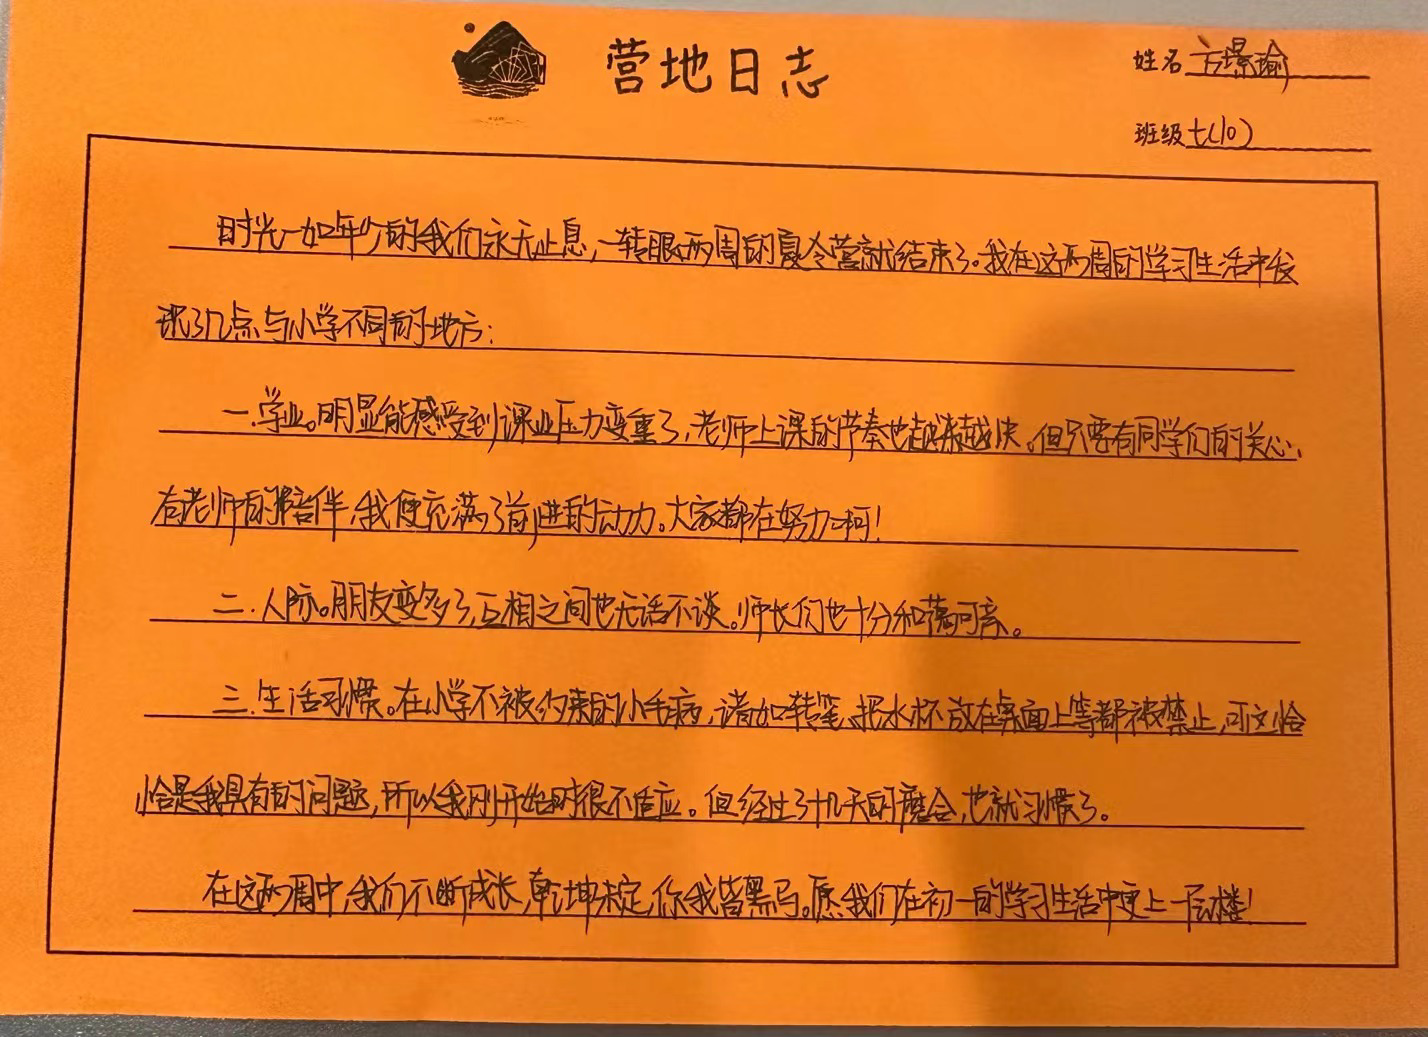 营地日志
姓名 方璟瑜
班级 七(10)
时光一如年少的我们永无止息,一转眼两周的夏令营就结束了。我在这两周的学习生活中发
现了几点与小学不同的地方:
一.学业。明显能感受到课业压力变重了,老师上课的节奏也越来越快。但只要有同学们的关心、
有老师的陪伴,我便充满了前进的动力。大家都在努力啊!
二.人际。朋友变多了,互相之间也无话不谈。师长们也十分和蔼可亲。
三.生活习惯。在小学不被约束的小毛病,诸如转笔、把水杯放在桌面上等都被禁止,可这恰
恰是我具有的问题,所以我刚开始时很不适应。但经过了十几天的磨合,也就习惯了。
在这两周中,我们不断成长,乾坤未定,你我皆黑马。愿我们在初一的学习生活中更上一层楼!